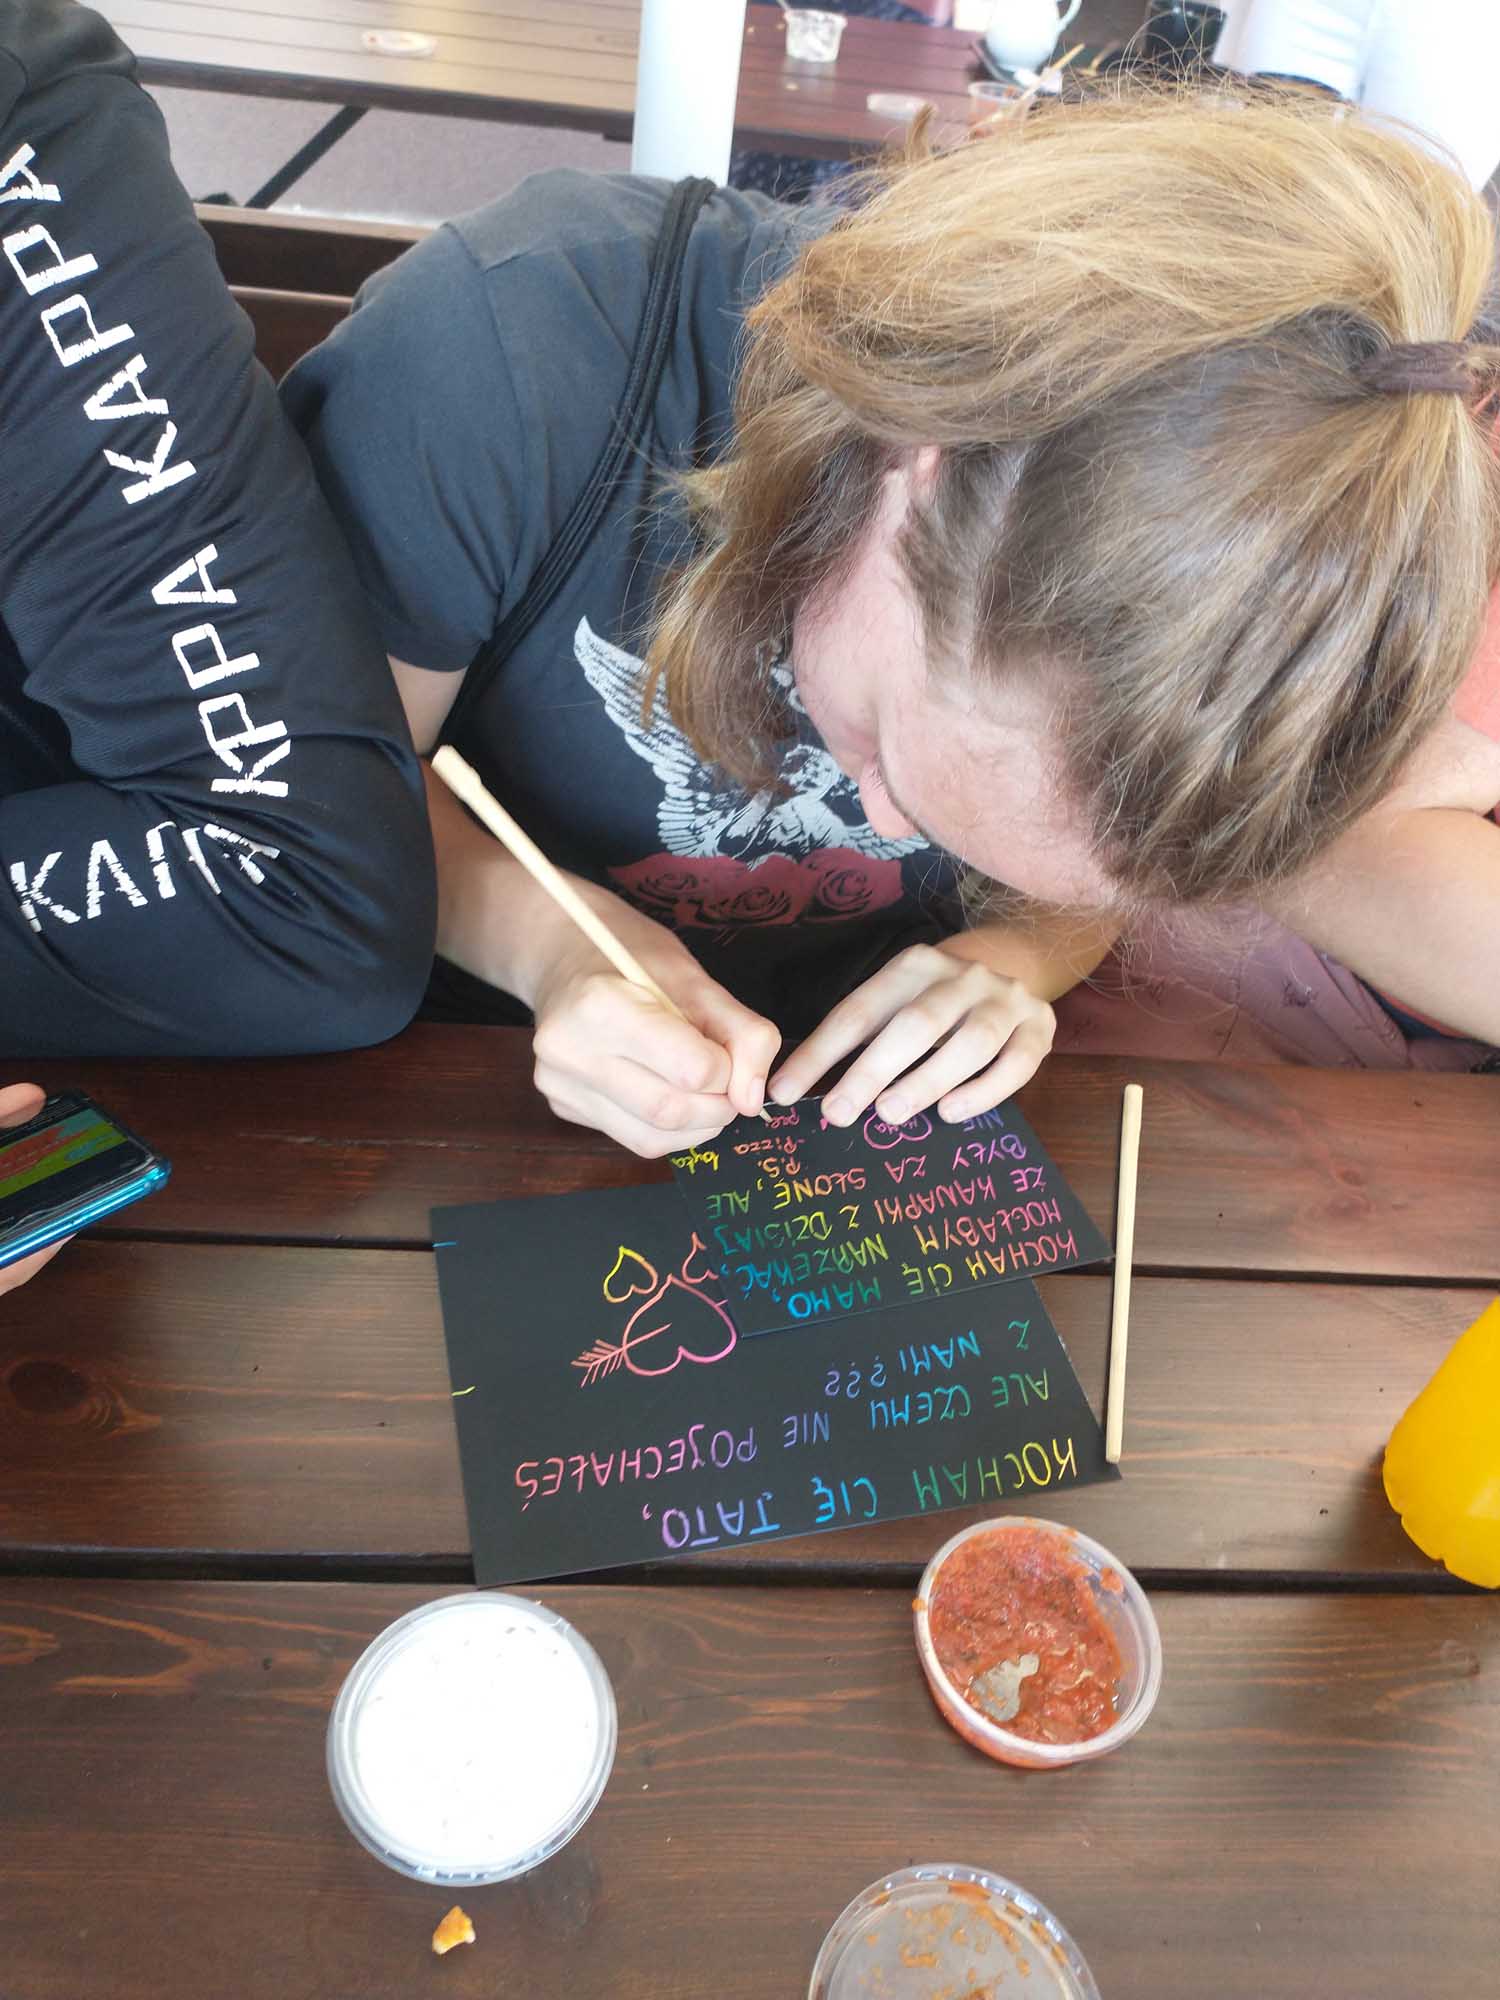 KAPPA KAPPA
KAPPA KAPPA
KOCHAM CIĘ MAMO,
MOGŁABYM NARZEKAĆ,
ŻE KANAPKI Z DZISIAJ
BYŁY ZA SŁONE, ALE
NIE
Haha
P.S.
-Pizza była
KOCHAM CIĘ TATO,
ALE CZEMU NIE POJECHAŁEŚ
Z NAMI???